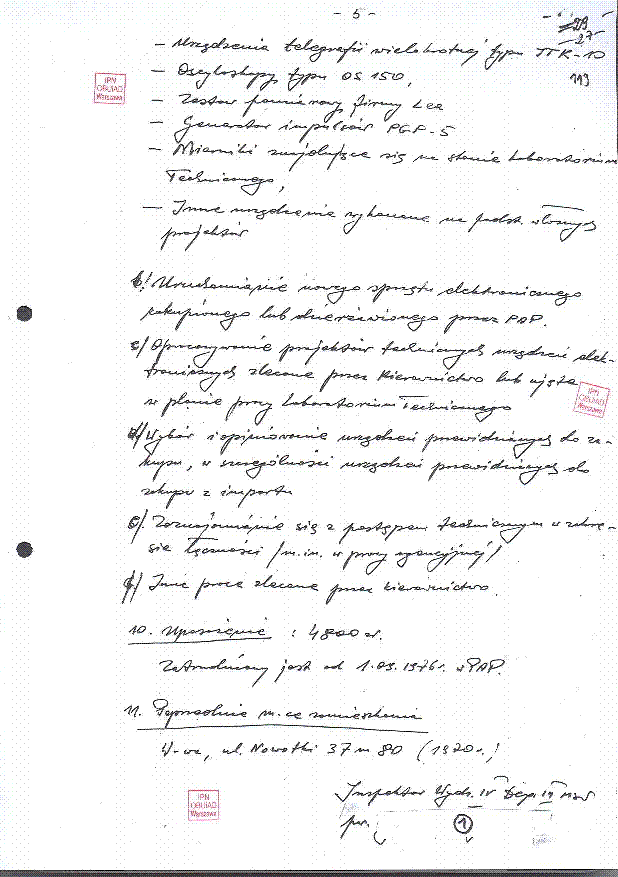 - 5 -
29
27
113
- Urządzenia telegrafii wielokrotnej typu TTK-10
IPN
OBUiAD
Warszawa
- Oscyloskopy typu OS 150,
- Zestaw pomiarowy firmy Lea
- Generator impulsów PGP-5
- Mierniki znajdujące się na stanie Laboratorium
Technicznego,
- Inne urządzenia wykonane na podst. własnych
projektów
b/ Uruchamianie nowego sprzętu elektronicznego
zakupionego lub dzierżawionego przez PAP.
c/ Opracowywanie projektów technicznych urządzeń elek-
tronicznych zlecone przez Kierownictwo lub ujęte
w planie pracy Laboratorium Technicznego
IPN
OBUiAD
Warszawa
d/ Wybór i opiniowanie urządzeń przewidzianych do za-
kupu, w szczególności urządzeń przewidzianych do
zakupu z importu
e/ Zaznajamianie się z postępem technicznym w zakre-
sie łączności /m.in. w pracy agencyjnej/
f/ Inne prace zlecone przez kierownictwo.
10. Uposażenie : 4800 zł.
Zatrudniony jest od 1.09.1976r. w PAP.
11. Poprzednie m-ce zamieszkania
W-wa, ul. Nowotki 37 m 80 (1970r.)
IPN
OBUiAD
Warszawa
Inspektor Wydz. IV Dep. III MSW
1